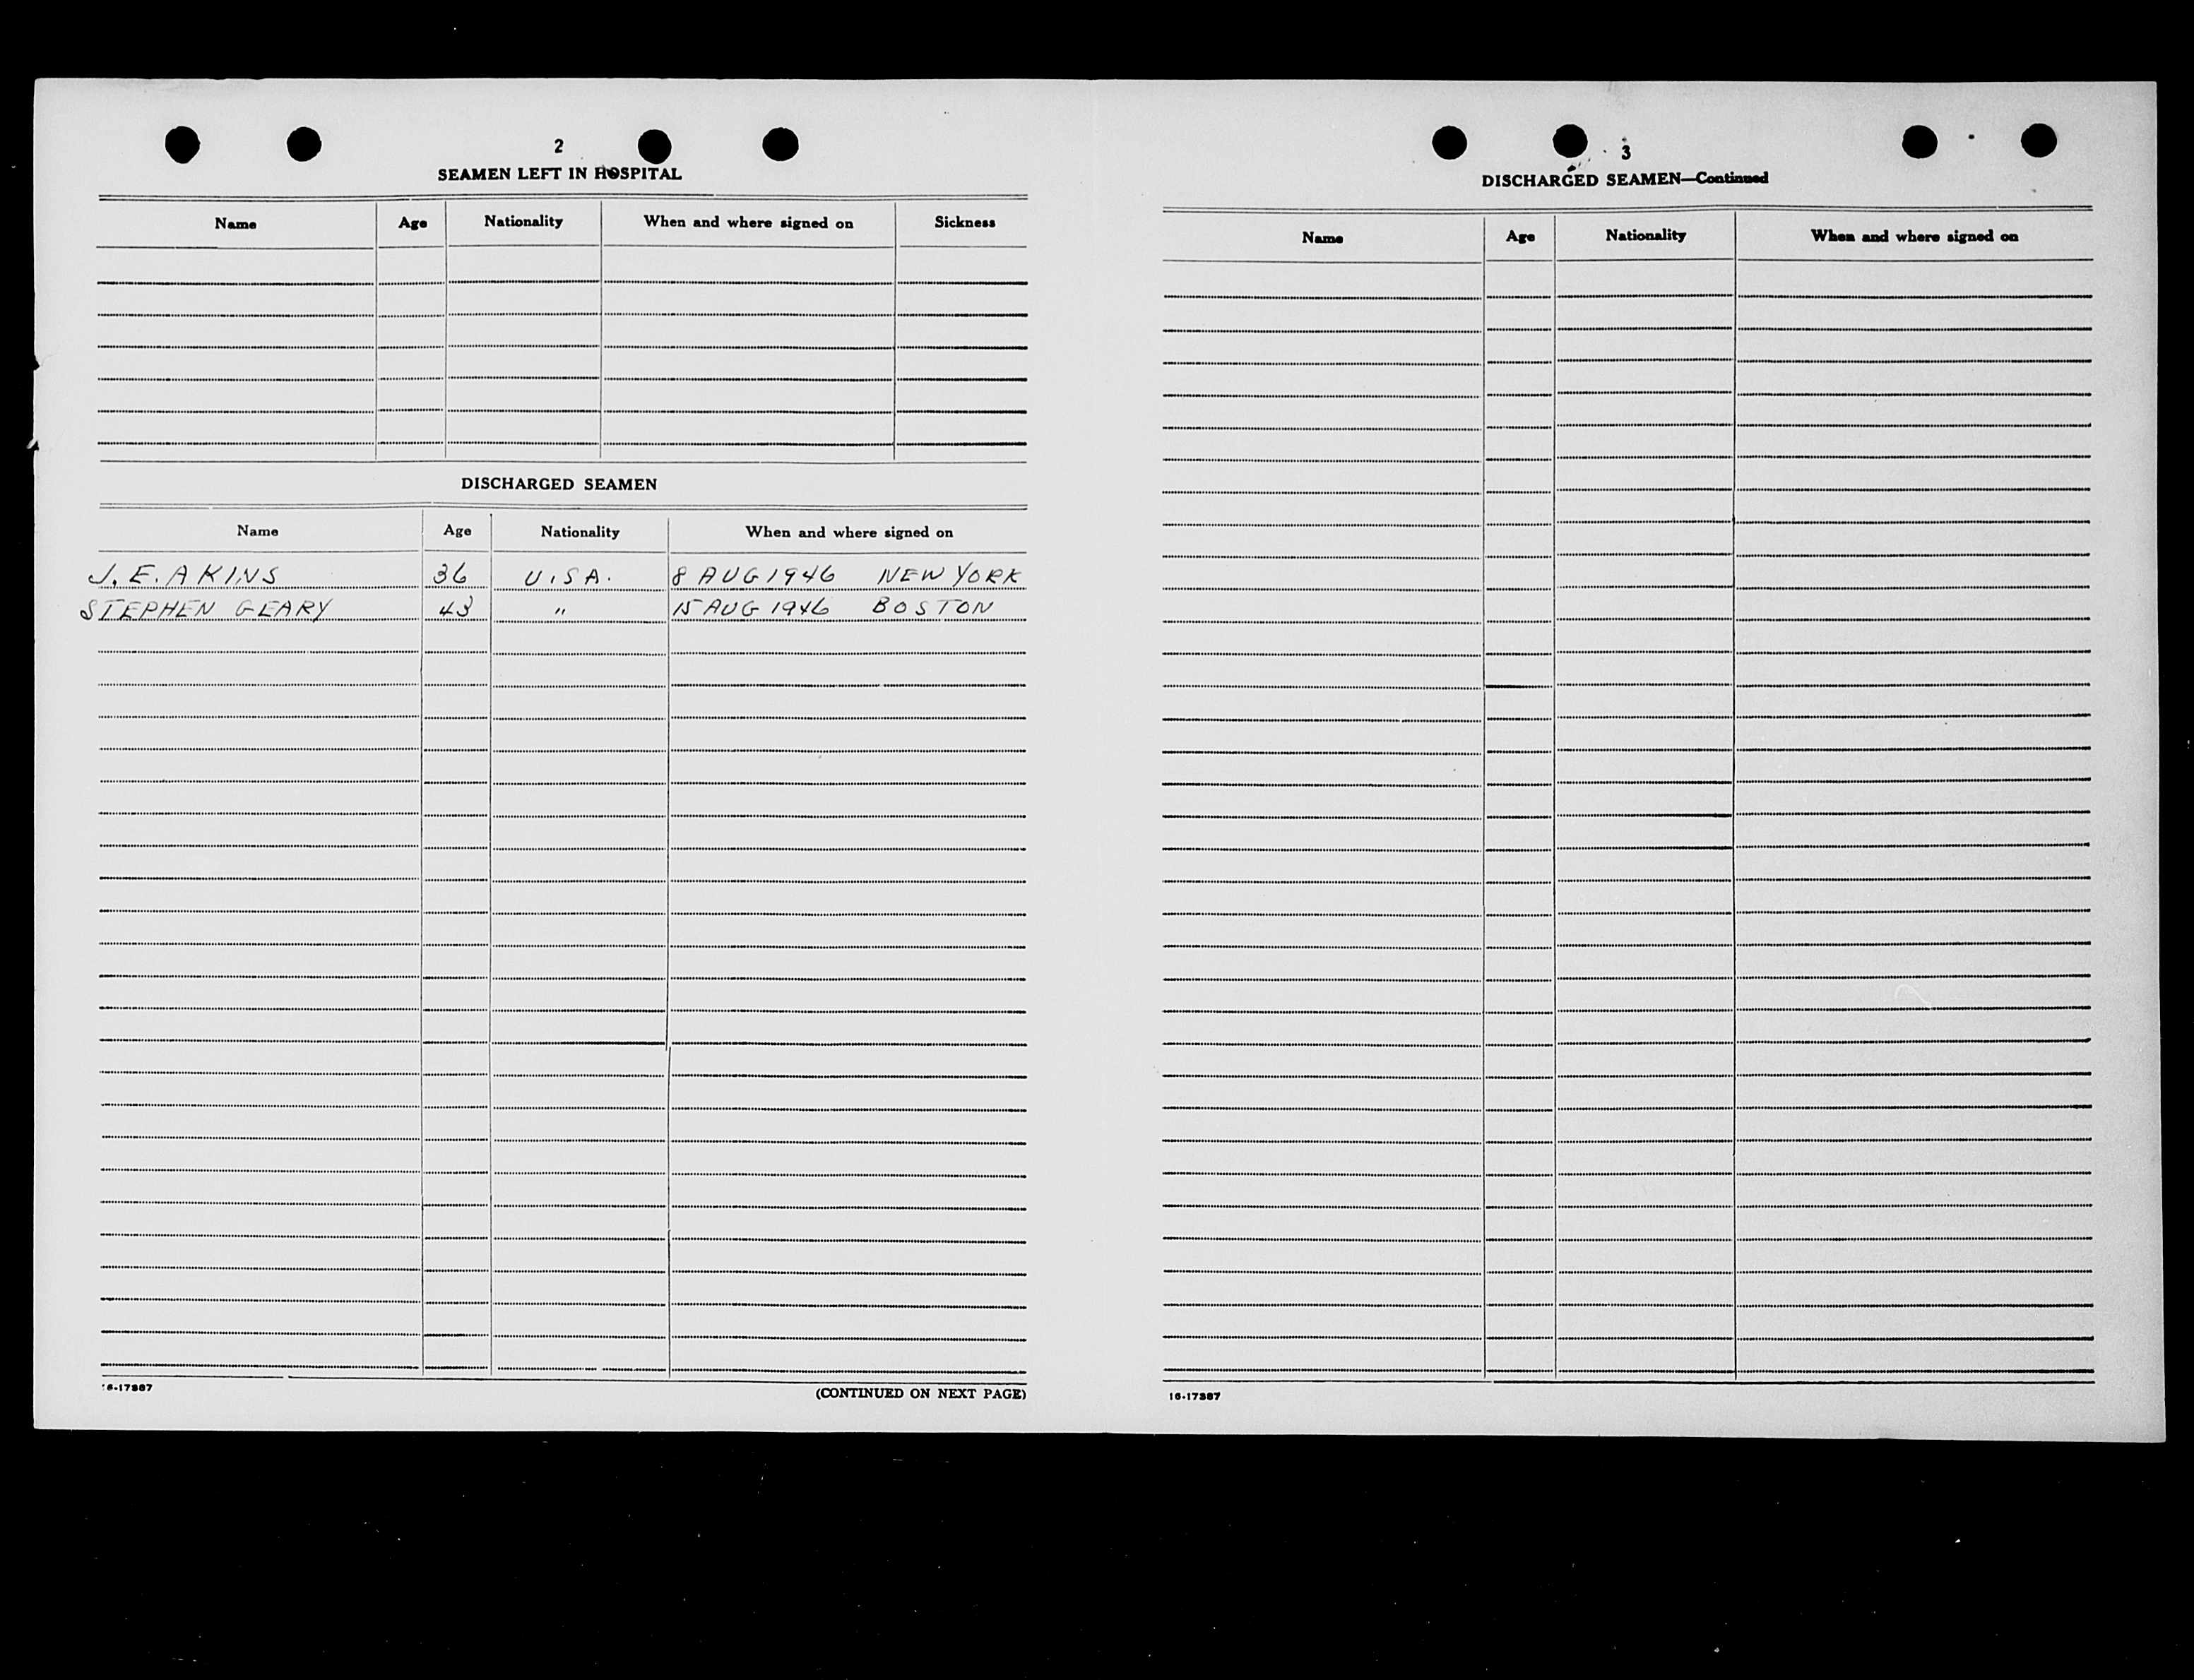 2
SEAMEN LEFT IN HOSPITAL
Name Age Nationality When and where signed on Sickness
DISCHARGED SEAMEN
Name Age Nationality When and where signed on
J. E. AKINS 36 U.S.A. 8 AUG 1946 NEW YORK
STEPHEN GEARY 43 " 15 AUG 1946 BOSTON
16-17387 (CONTINUED ON NEXT PAGE)
3
DISCHARGED SEAMEN—Continued
Name Age Nationality When and where signed on
16-17387